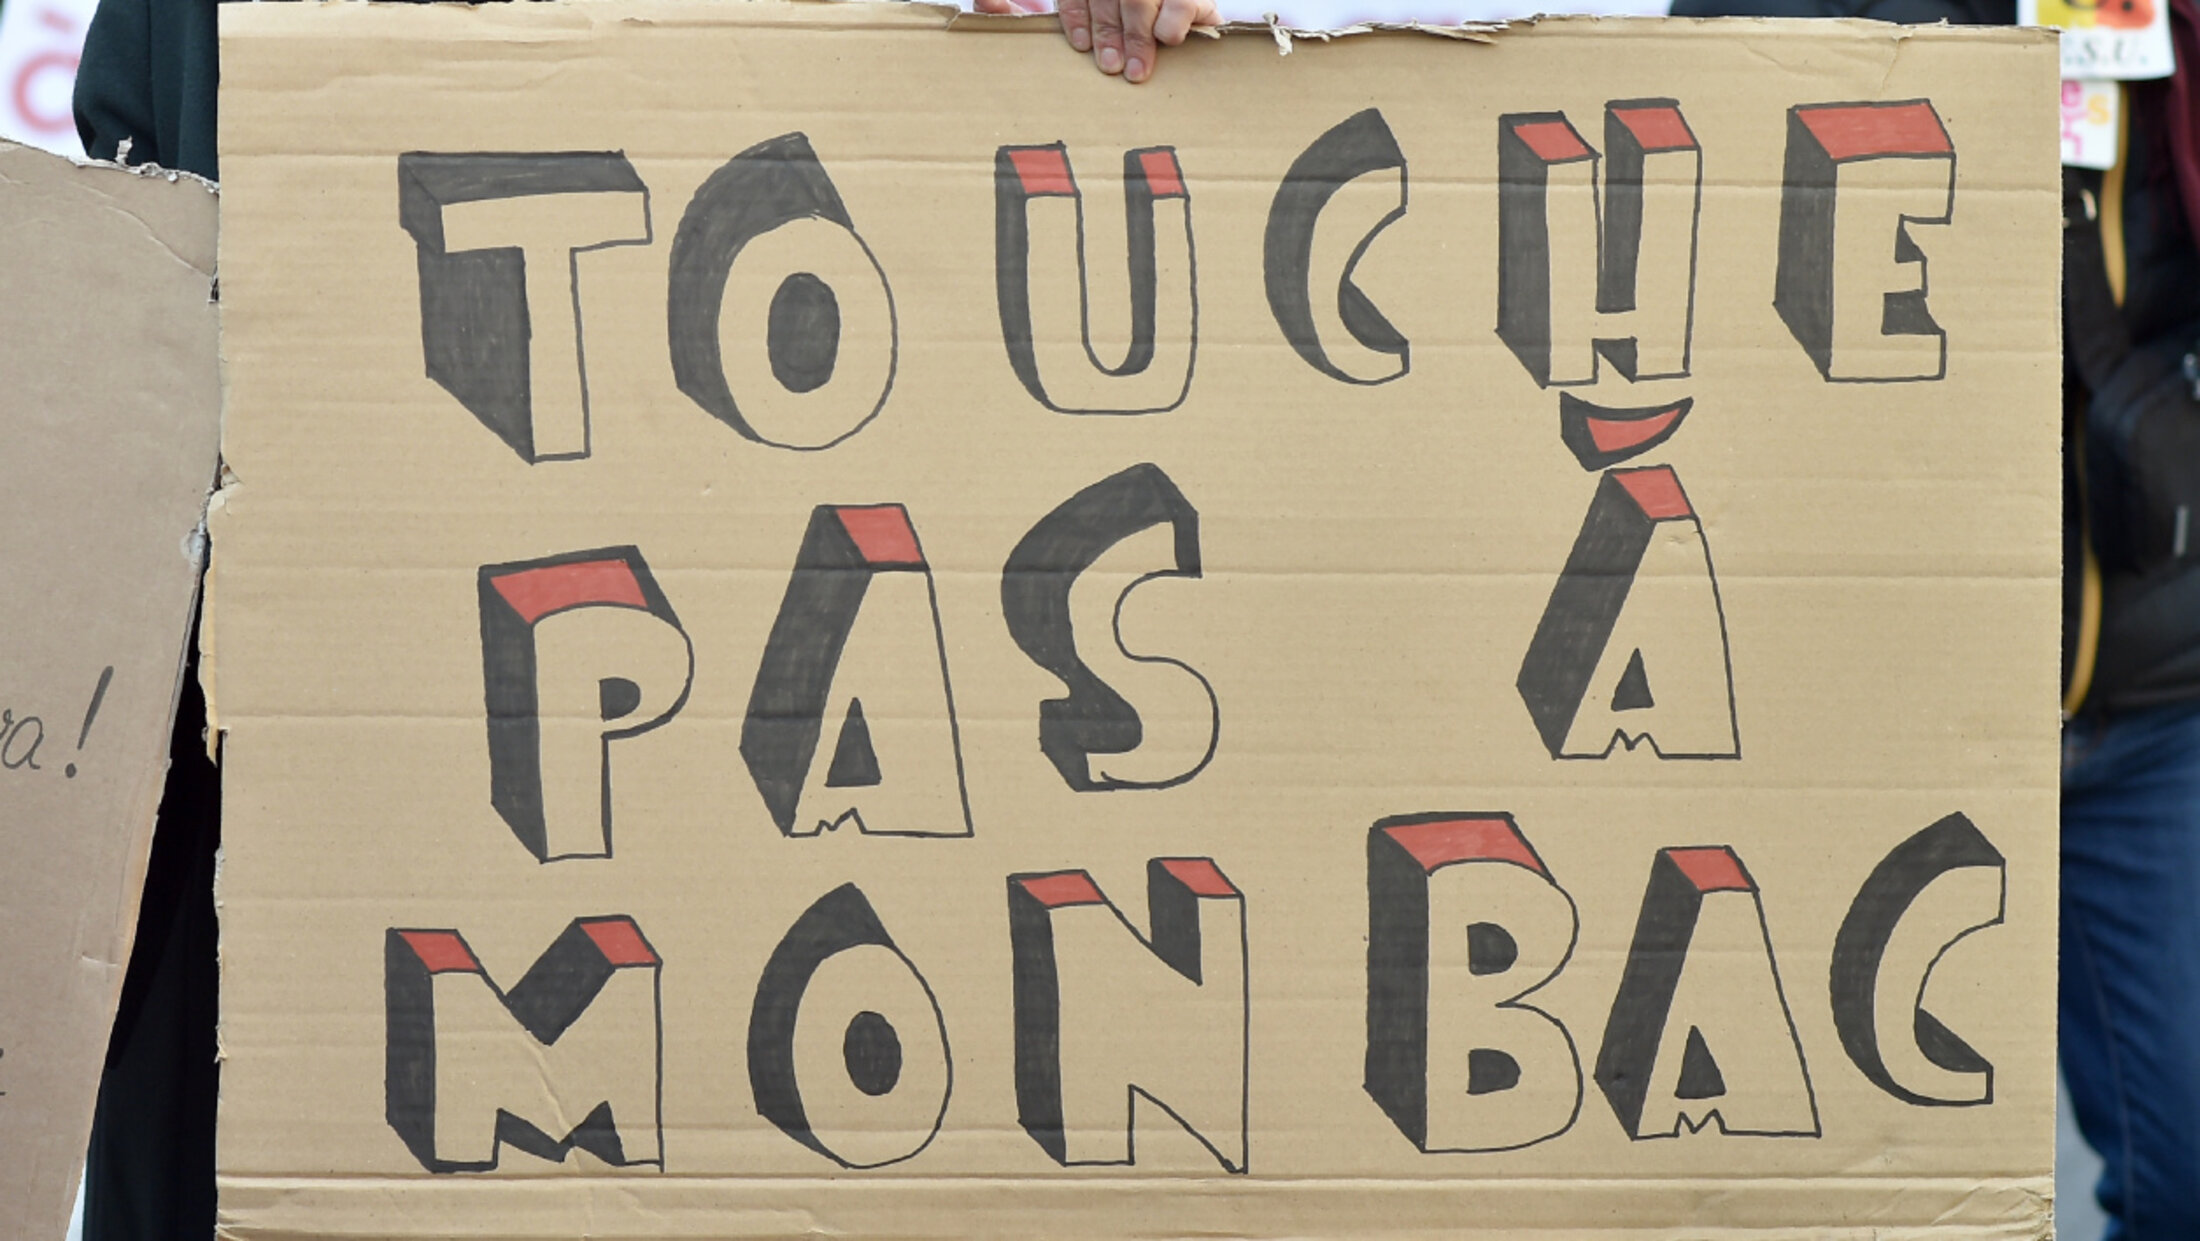 TOUCHE
PAS À
MON BAC
a!
S.U.
es